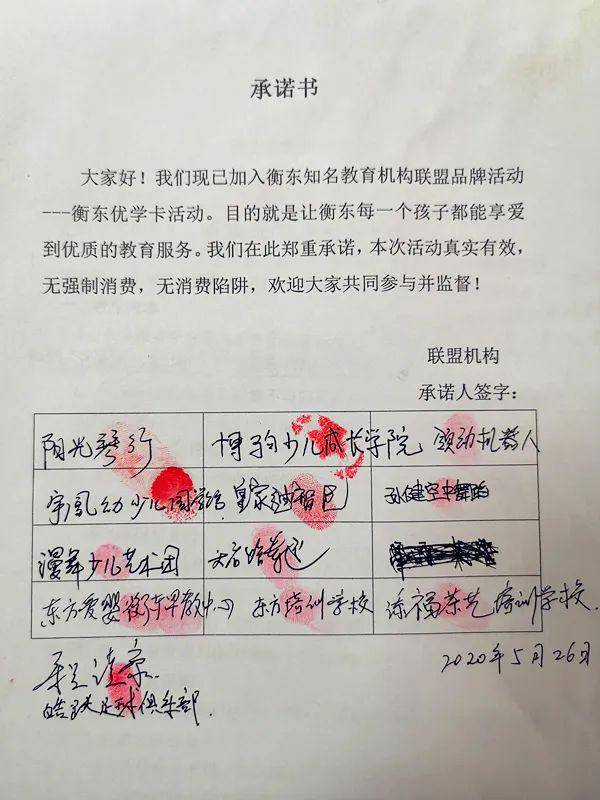 承诺书
大家好！我们现已加入衡东知名教育机构联盟品牌活动
---衡东优学卡活动。目的就是让衡东每一个孩子都能享爱
到优质的教育服务。我们在此郑重承诺，本次活动真实有效，
无强制消费，无消费陷阱，欢迎大家共同参与并监督！
联盟机构
承诺人签字：
阳光琴行 博 少儿成长学院 动机器人
少儿国学馆 皇家迪智尼
漫舞少儿艺术团
东方爱婴衡东早教中心 东方培训学校 福茶艺培训学校
2020年5月26日
足球俱乐部